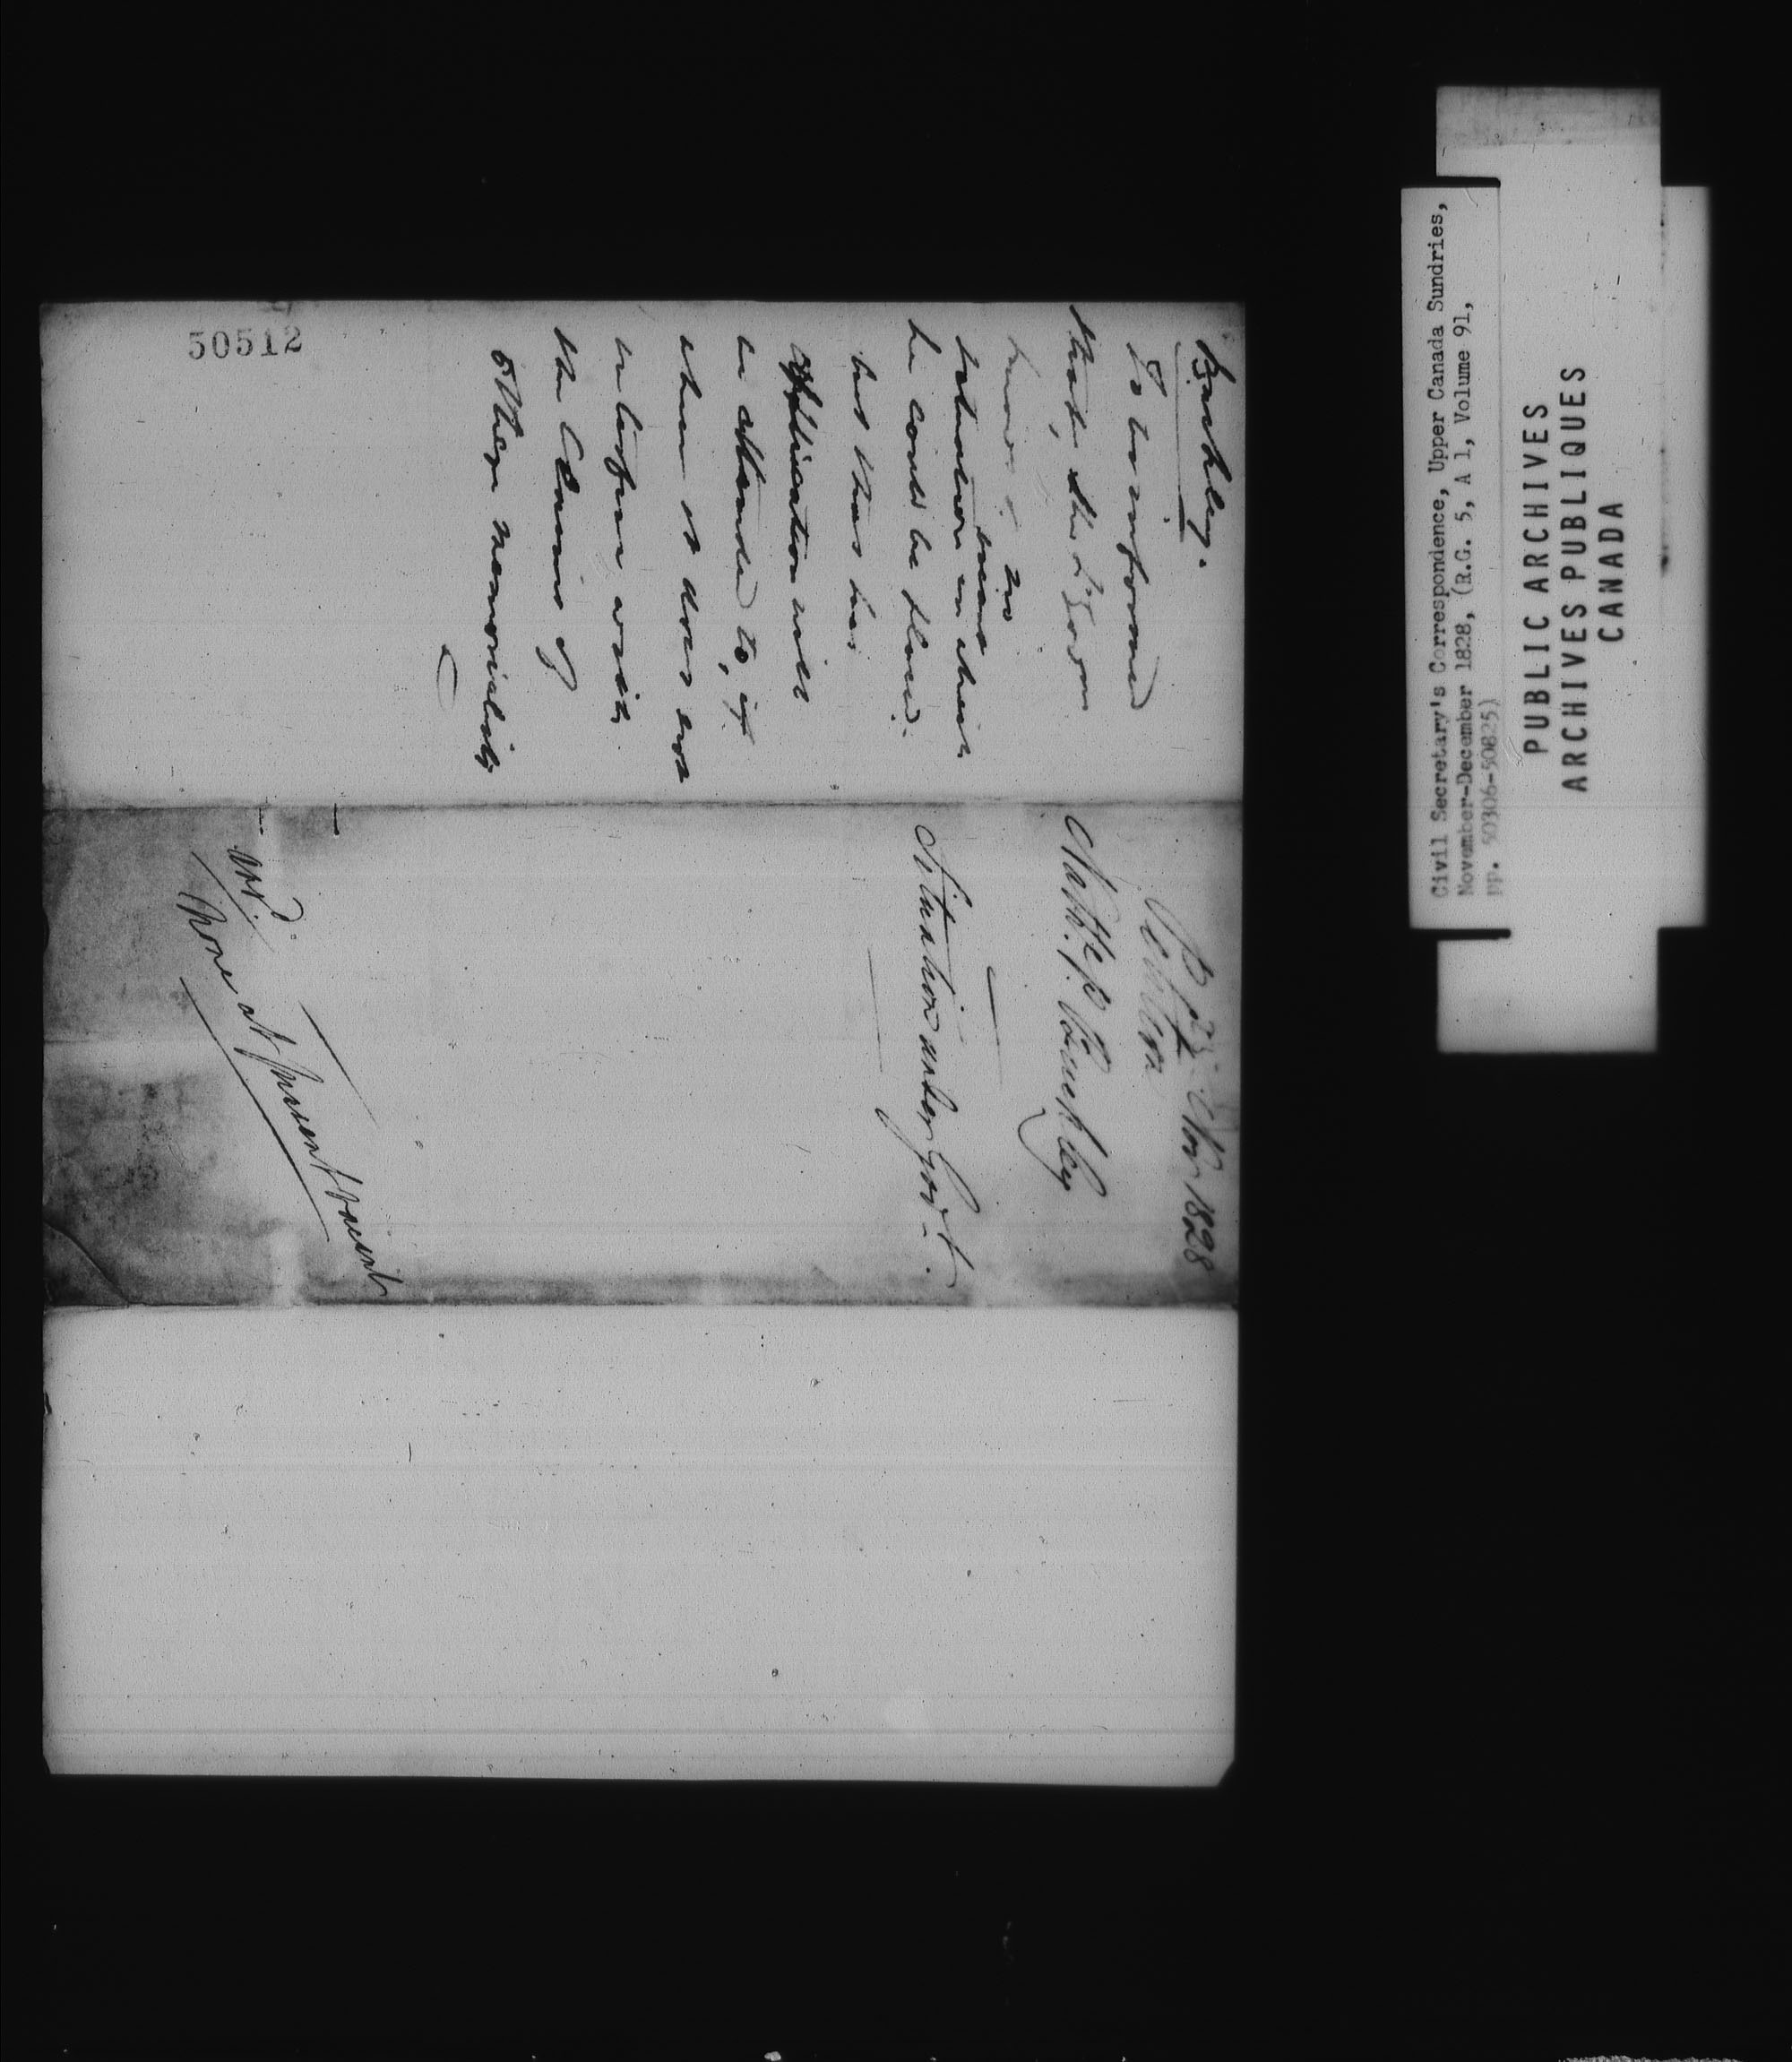 50512
Barkley.
To be informed
that, the Lt Govr
knows of no
vacant
situation in which
he could be placed.
but that his
application will
be attended to, if
when it does not
interfere with
the Claims of
other memorialists
Recd 25 Nov 1828
Petition
Matth. P. Barkley
Situation under Govt.
ansd.
None at present vacant
Civil Secretary's Correspondence, Upper Canada Sundries,
November-December 1828, (R.G. 5, A 1, Volume 91,
pp. 50306-50825)
PUBLIC ARCHIVES
ARCHIVES PUBLIQUES
CANADA